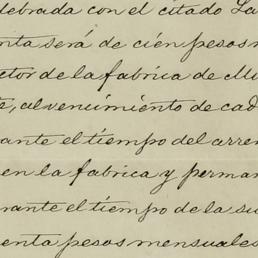 lebrada con el citado La
nta será de cien pesos m
ctor de la fabrica de Mo
te, al vencimiento de cad
ante el tiempo del arren
en la fabrica y perman
rante el tiempo de la su
enta pesos mensuales